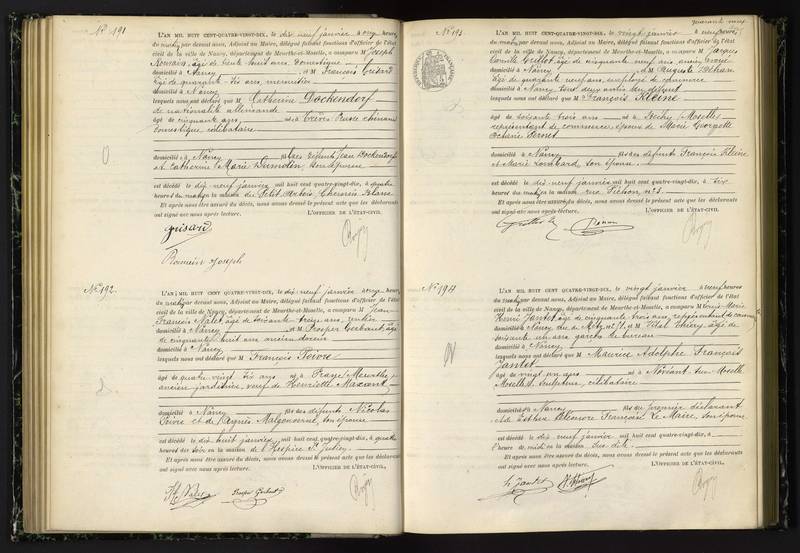 N° 191
L'AN MIL HUIT CENT QUATRE-VINGT-DIX, le dix neuf janvier à onze heures
du matin par devant nous, Adjoint au Maire, délégué faisant fonctions d'officier de l'état
civil de la ville de Nancy, département de Meurthe-et-Moselle, a comparu M Joseph
Romain, âgé de trente huit ans, domestique
domicilié à Nancy, et M François Guisard
âgé de quarante six ans, menuisier
domicilié à Nancy
lesquels nous ont déclaré que M Catherine Dockendorf
de nationalité allemande
âgé de cinquante ans née à Trèves Prusse rhénane
domestique célibataire
domicilié à Nancy fils des défunts Jean Dockendorf
et Catherine Marie son épouse
est décédé le dix neuf janvier mil huit cent quatre-vingt-dix, à quatre
heures du matin en la maison du Petit Arbois, Chemin Blanc
Et après nous être assuré du décès, nous avons dressé le présent acte que les déclarants
ont signé avec nous après lecture. L'OFFICIER DE L'ÉTAT-CIVIL
guisard
Romain Joseph
N° 192
L'AN MIL HUIT CENT QUATRE-VINGT-DIX, le dix neuf janvier à onze heures
du matin par devant nous, Adjoint au Maire, délégué faisant fonctions d'officier de l'état
civil de la ville de Nancy, département de Meurthe-et-Moselle, a comparu M Jean
François Nalet, âgé de soixante treize ans, rentier
domicilié à Nancy, et M Prosper Gerbaut, âgé
de cinquante huit ans ancien
domicilié à Nancy
lesquels nous ont déclaré que M François Peivre
âgé de quatre vingt six ans né à Meurthe
ancien jardinier, veuf de Henriette
domicilié à Nancy fils des défunts Nicolas
Peivre et de son épouse
est décédé le dix huit janvier mil huit cent quatre-vingt-dix, à quatre
heures du soir en la maison de l'Hospice St Julien
Et après nous être assuré du décès, nous avons dressé le présent acte que les déclarants
ont signé avec nous après lecture. L'OFFICIER DE L'ÉTAT-CIVIL,
quarante neuf
N° 193
L'AN MIL HUIT CENT QUATRE-VINGT-DIX, le vingt janvier à neuf heures
du matin par devant nous, Adjoint au Maire, délégué faisant fonctions d'officier de l'état
civil de la ville de Nancy, département de Meurthe-et-Moselle, a comparu M Jacques
Camille âgé de cinquante neuf ans, ancien
domicilié à Nancy, et M Auguste
âgé de quarante neuf ans, employé de commerce
domicilié à Nancy tous deux amis du défunt
lesquels nous ont déclaré que M François Kleine
âgé de soixante trois ans né à (Moselle)
représentant de commerce, époux de Marie Georgette
domicilié à Nancy fils des défunts François Kleine
et Marie Lombard, son épouse
est décédé le dix neuf janvier mil huit cent quatre-vingt-dix, à six
heures du matin en la maison rue n° 3
Et après nous être assuré du décès, nous avons dressé le présent acte que les déclarants
ont signé avec nous après lecture. L'OFFICIER DE L'ÉTAT-CIVIL
N° 194
L'AN MIL HUIT CENT QUATRE-VINGT-DIX, le vingt janvier à neuf heures
du matin par devant nous, Adjoint au Maire, délégué faisant fonctions d'officier de l'état
civil de la ville de Nancy, département de Meurthe-et-Moselle, a comparu M Louis Marie
Henri Jantet âgé de cinquante trois ans, représentant de commerce
domicilié à Nancy rue de Metz n° 51, et M Vital Thiery, âgé de
soixante un ans, garçon de bureau
domicilié à Nancy
lesquels nous ont déclaré que M Maurice Adolphe François
Jantet
âgé de vingt un ans né à Novéant sur Moselle
Moselle, sculpteur, célibataire
domicilié à Nancy fils du premier déclarant
et de Esther Eléonore Françoise Le Maire, son épouse
est décédé le dix neuf janvier mil huit cent quatre-vingt-dix, à
heure de midi en la maison sus dite
Et après nous être assuré du décès, nous avons dressé le présent acte que les déclarants
ont signé avec nous après lecture. L'OFFICIER DE L'ÉTAT-CIVIL,
h. Jantet